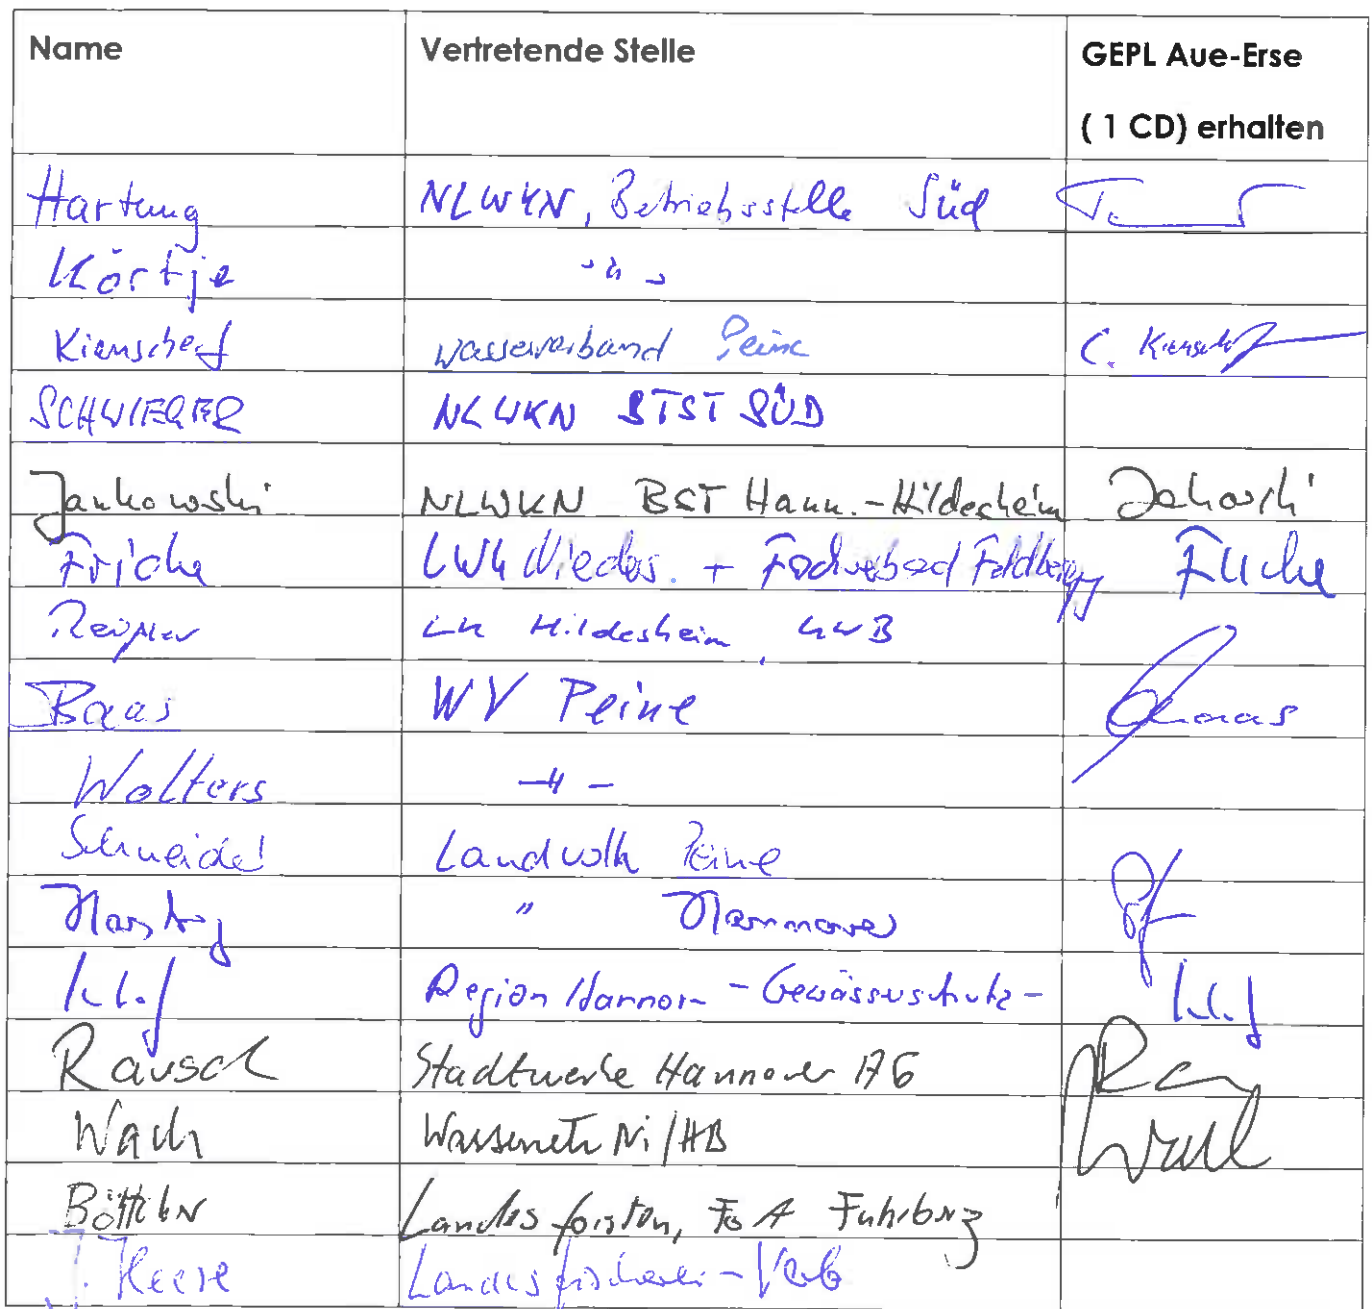 Name Vertretende Stelle GEPL Aue-Erse
( 1 CD) erhalten
Hartung NLWKN, Betriebsstelle Süd
Körtje -"-
Kienscherf Wasserverband Peine C. Kienscherf
SCHWIEGER NLWKN BTST SÜD
Jankowski NLWKN BST Hann.-Hildesheim Jankowski
Fricke LWK Nieders. + Fachverband Feldberegg Fricke
LK Hildesheim, UWB
Baas WV Peine Baas
Wolters -"-
Schneider Landvolk Peine
Hartung " Hannover
Region Hannover - Gewässerschutz -
Rausch Stadtwerke Hannover AG
Wach Wassernetz Ni/HB Wach
Böttcher Landesforsten, FoA Fuhrberg
J. Heese Landesfischerei-Verb